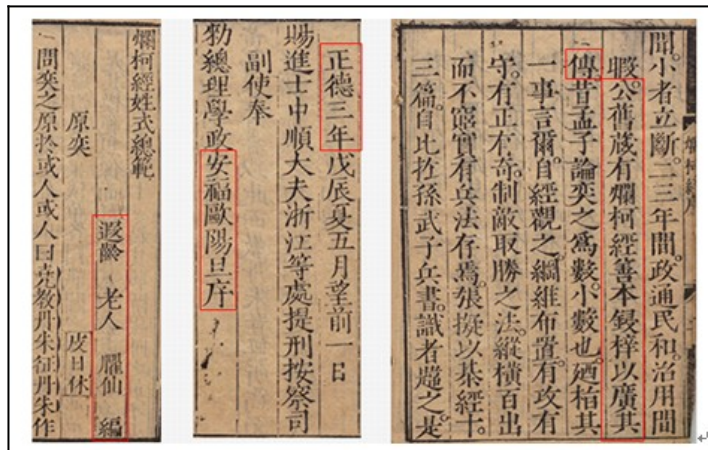 聞。小者立斷。二三年間。政通民和。治用間
暇。公舊蔵有爛柯經善本鋟梓以廣其
傳昔孟子論奕之爲數小數也。廼指其
一事言爾。自經觀之。綱維布置。有攻有
守。有正有奇。制敵取勝之法。縱橫百出
而不窮實有兵法存焉。張擬以棊經十
三篇。自比扵孫武子兵書。識者韙之。是
正德三年戊辰夏五月望前一日
賜進士中順大夫浙江等處提刑按察司
副使奉
勑總理學政安福歐陽旦序
爛柯經姓式總範
遐齡 老人 臞仙 編
原奕 皮日休
問奕之原扵或人或人曰堯教丹朱征丹朱作